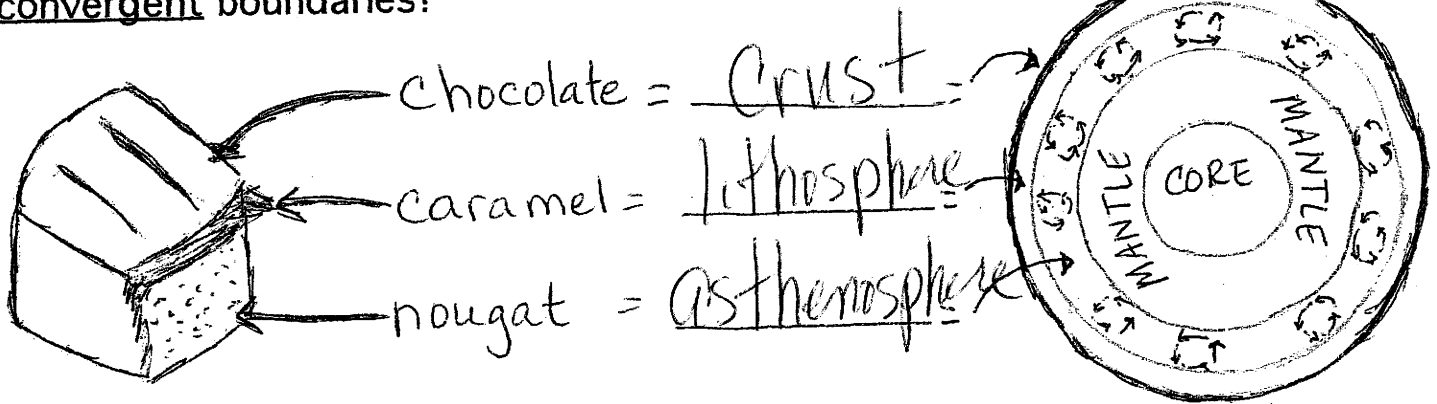 convergent boundaries?
chocolate = Crust =
caramel = lithosphere =
nougat = asthenosphere
MANTLE
CORE
MANTLE